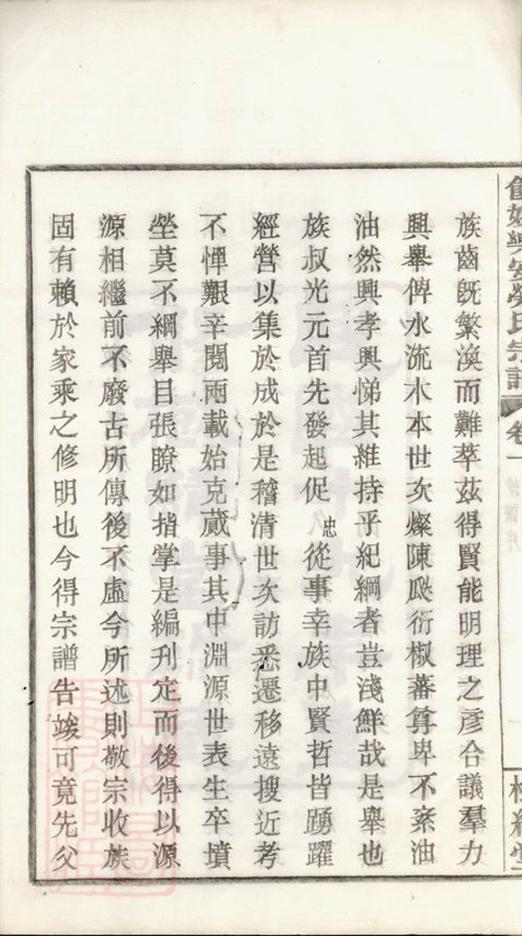 族齒旣繁渙而難萃茲得賢能明理之彥合議羣力
興舉俾水流木本世次燦陳瓞衍椒蕃尊卑不紊油
油然興孝興悌其維持乎紀綱者豈淺鮮哉是舉也
族叔光元首先發起促忠從事幸族中賢哲皆踴躍
經營以集於成於是稽清世次訪悉遷移遠搜近考
不憚艱辛閱兩載始克蕆事其中淵源世表生卒墳
塋莫不綱舉目張瞭如指掌是編刋定而後得以源
源相繼前不廢古所傳後不虛今所述則敬宗收族
固有賴於家乘之修明也今得宗譜告竣可竟先父